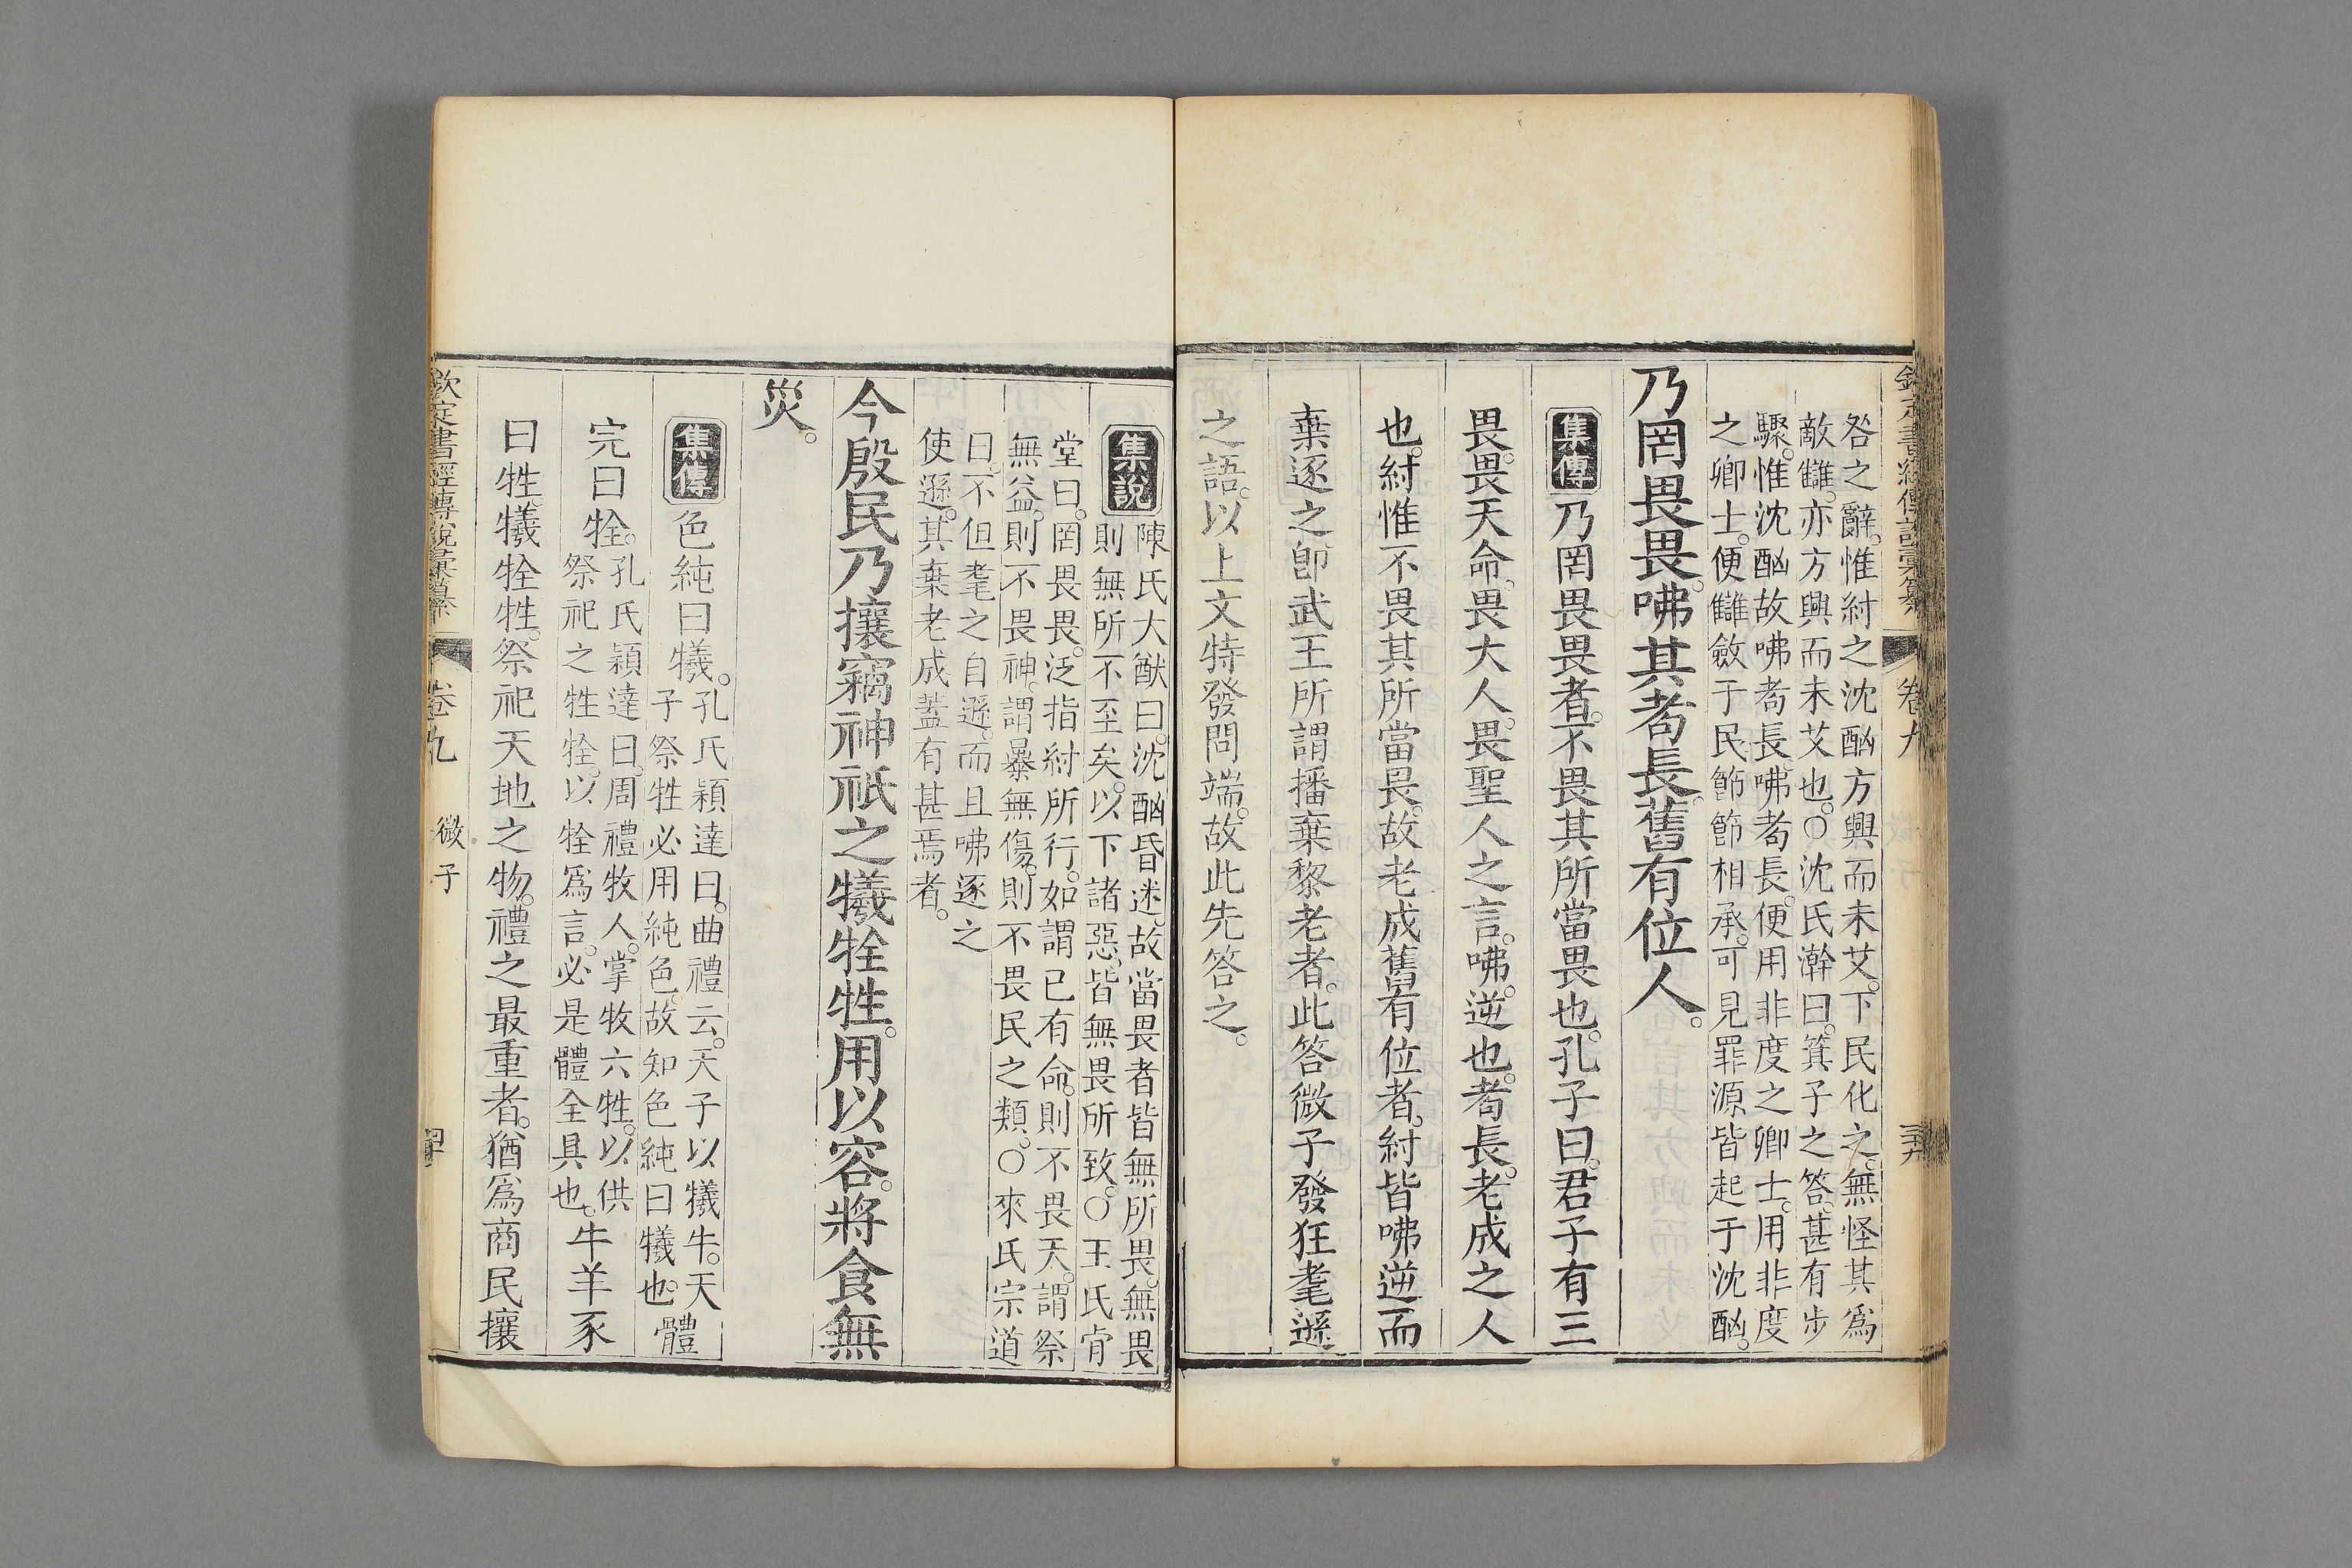 欽定書經傳說彙纂 卷九
咎之辭。惟紂之沈酗方興而未艾。下民化之。無怪其爲
敵讎。亦方興而未艾也。○沈氏澣曰。箕子之答。甚有步
驟。惟沈酗故咈耇長。咈耇長。便用非度之卿士。用非度
之卿士。便讎斂于民。節節相承。可見罪源皆起于沈酗。
乃罔畏畏。咈其耇長。舊有位人。
集傳 乃罔畏畏者。不畏其所當畏也。孔子曰。君子有三
畏。畏天命。畏大人。畏聖人之言。咈。逆也。耇長。老成之人
也。紂惟不畏其所當畏。故老成舊有位者。紂皆咈逆而
棄逐之。卽武王所謂播棄黎老者。此答微子發狂耄遜
之語。以上文特發問端。故此先答之。
集說 陳氏大猷曰。沈酗昏迷。故當畏者皆無所畏。無畏
則無所不至矣。以下諸惡。皆無畏所致。○王氏肯
堂曰。罔畏畏。泛指紂所行。如謂已有命。則不畏天。謂祭
無益。則不畏神。謂暴無傷。則不畏民之類。○來氏宗道
曰。不但耄之自遜。而且咈逐之
使遜。其棄老成蓋有甚焉者。
今殷民乃攘竊神祇之犧牷牲。用以容。將食無
災。
集傳 色純曰犧。孔氏穎達曰。曲禮云。天子以犧牛。天
子祭牲必用純色。故知色純曰犧也。體
完曰牷。孔氏穎達曰。周禮牧人。掌牧六牲。以供
祭祀之牲牷。以牷爲言。必是體全具也。牛羊豕
曰牲。犧牷牲。祭祀天地之物。禮之最重者。猶爲商民攘
欽定書經傳說彙纂 卷九 微子